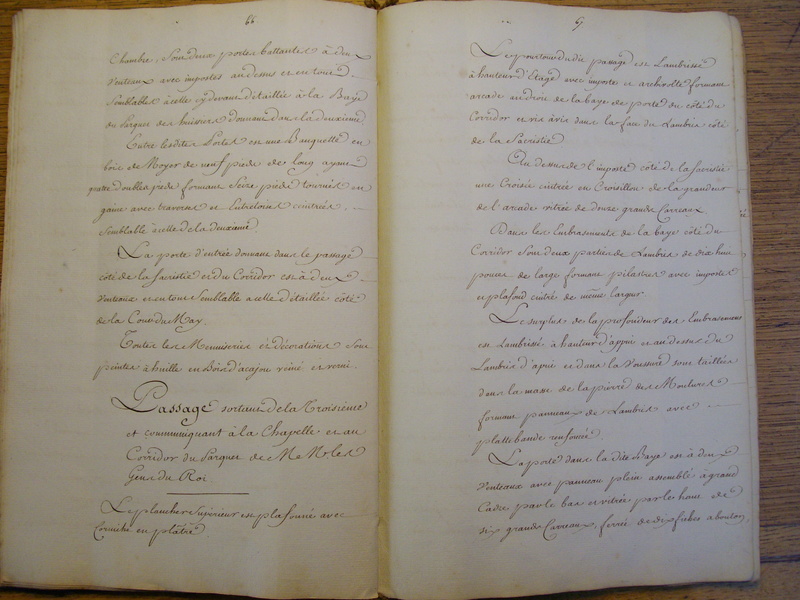 66
Chambre, Sont deux portes battantes à deux
Venteaux avec impostes au dessus et en tout
Semblables à celle cy devant détaillée à la Baye
du Parquet des huissiers donnant dans la deuxieme
Entre lesdites Portes est une Banquette en
bois de Noyer de neuf pieds de long ayant
quatre doubles pieds formant Seize pieds tournés en
gaine avec traverses et Entretoises cintrées,
Semblable à celle de la deuxieme.
La porte d'entrée donnant dans le passage
côté de la Sacristie et du Corridor est à deux
Venteaux et en tout Semblable a celle détaillée côté
de la Cour du May.
Toutes les Menuiseries et décorations Sont
peintes à huille en Bois d'acajou veiné et verni.
Passage sortant de la Troisieme
et communiquant à la Chapelle et au
Corridor du Parquet de M.M. les
Gens du Roi
Le plancher Supérieur est plafonné avec
Corniche en plâtre
67
Le pourtour dudit passage est Lambrissé
à hauteur d'Etage avec imposte et archivolte formant
arcade au droit de la baye de porte du côté du
Corridor et vis àvis dans la face du Lambris côté
de la Sacristie
Au dessus de l'imposte côté de la Sacristie
une Croisée cintrée en Croisillon de la grandeur
de l'arcade vitrée de douze grands Carreaux.
Dans les Embrasements de la baye côté du
Corridor Sont deux parties de Lambris de dix huit
pouces de large formant pilastres avec impostes
et plafond cintré de même largeur
Le surplus de la profondeur des Embrasemens
est Lambrissé à hauteur d'appui et au dessus du
Lambris d'apui et dans la Voussure sont taillées
dans la masse de la pierre des Moulures
formant panneaux de Lambris avec
plattebande renfoncée
La porte dans la dite Baye est à deux
Venteaux avec panneau plein assemblé à grand
Cadre par le bas et vitrée par le haut de
six grands Carreaux, ferrée de dix fiches a bouton,